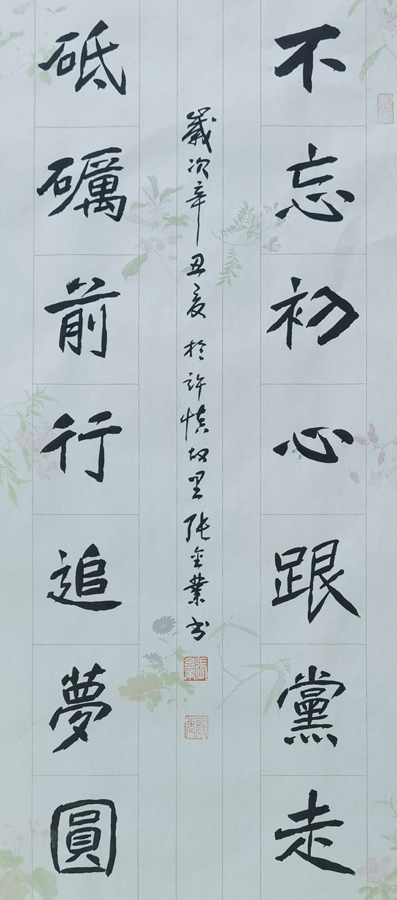 不忘初心跟黨走
砥礪前行追夢圓
歲次辛丑夏於許慎故里張金業書